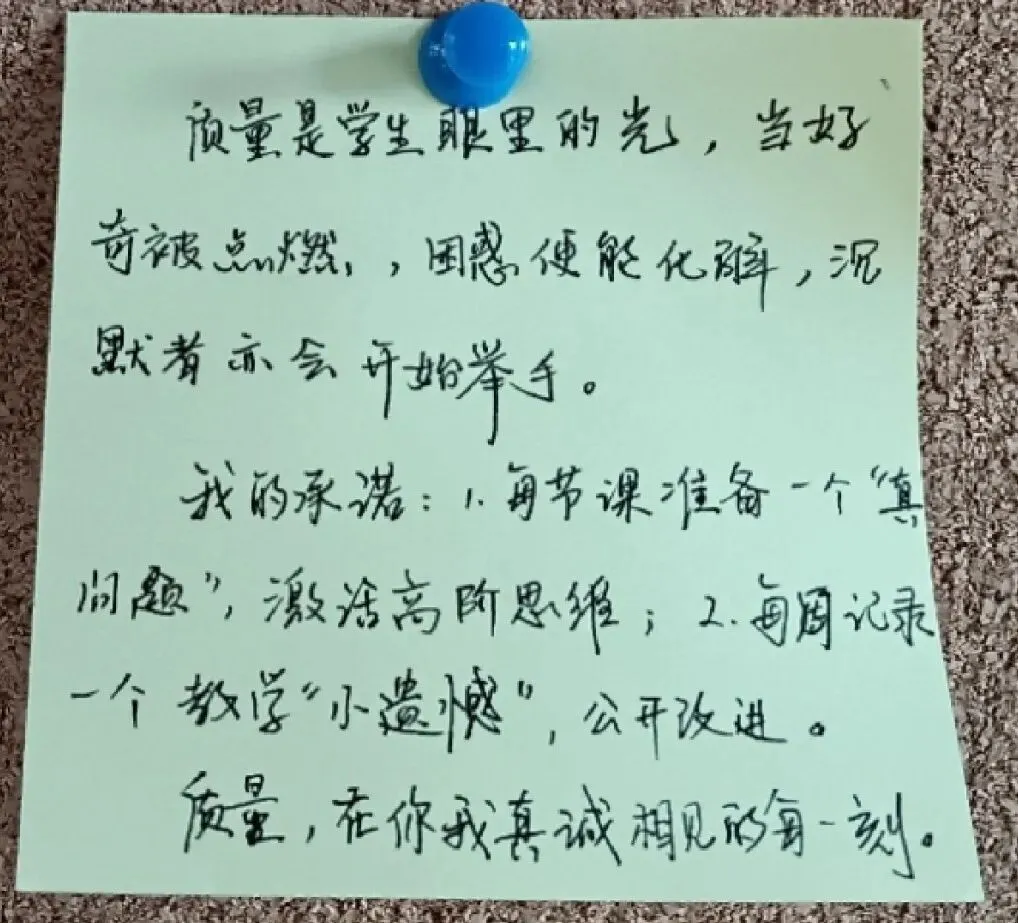 质量是学生眼里的光，当好
奇被点燃，困惑便能化解，沉
默者亦会开始举手。
我的承诺：1.每节课准备一个“真
问题”，激活高阶思维；2.每周记录
一个教学“小遗憾”，公开改进。
质量，在你我真诚相见的每一刻。